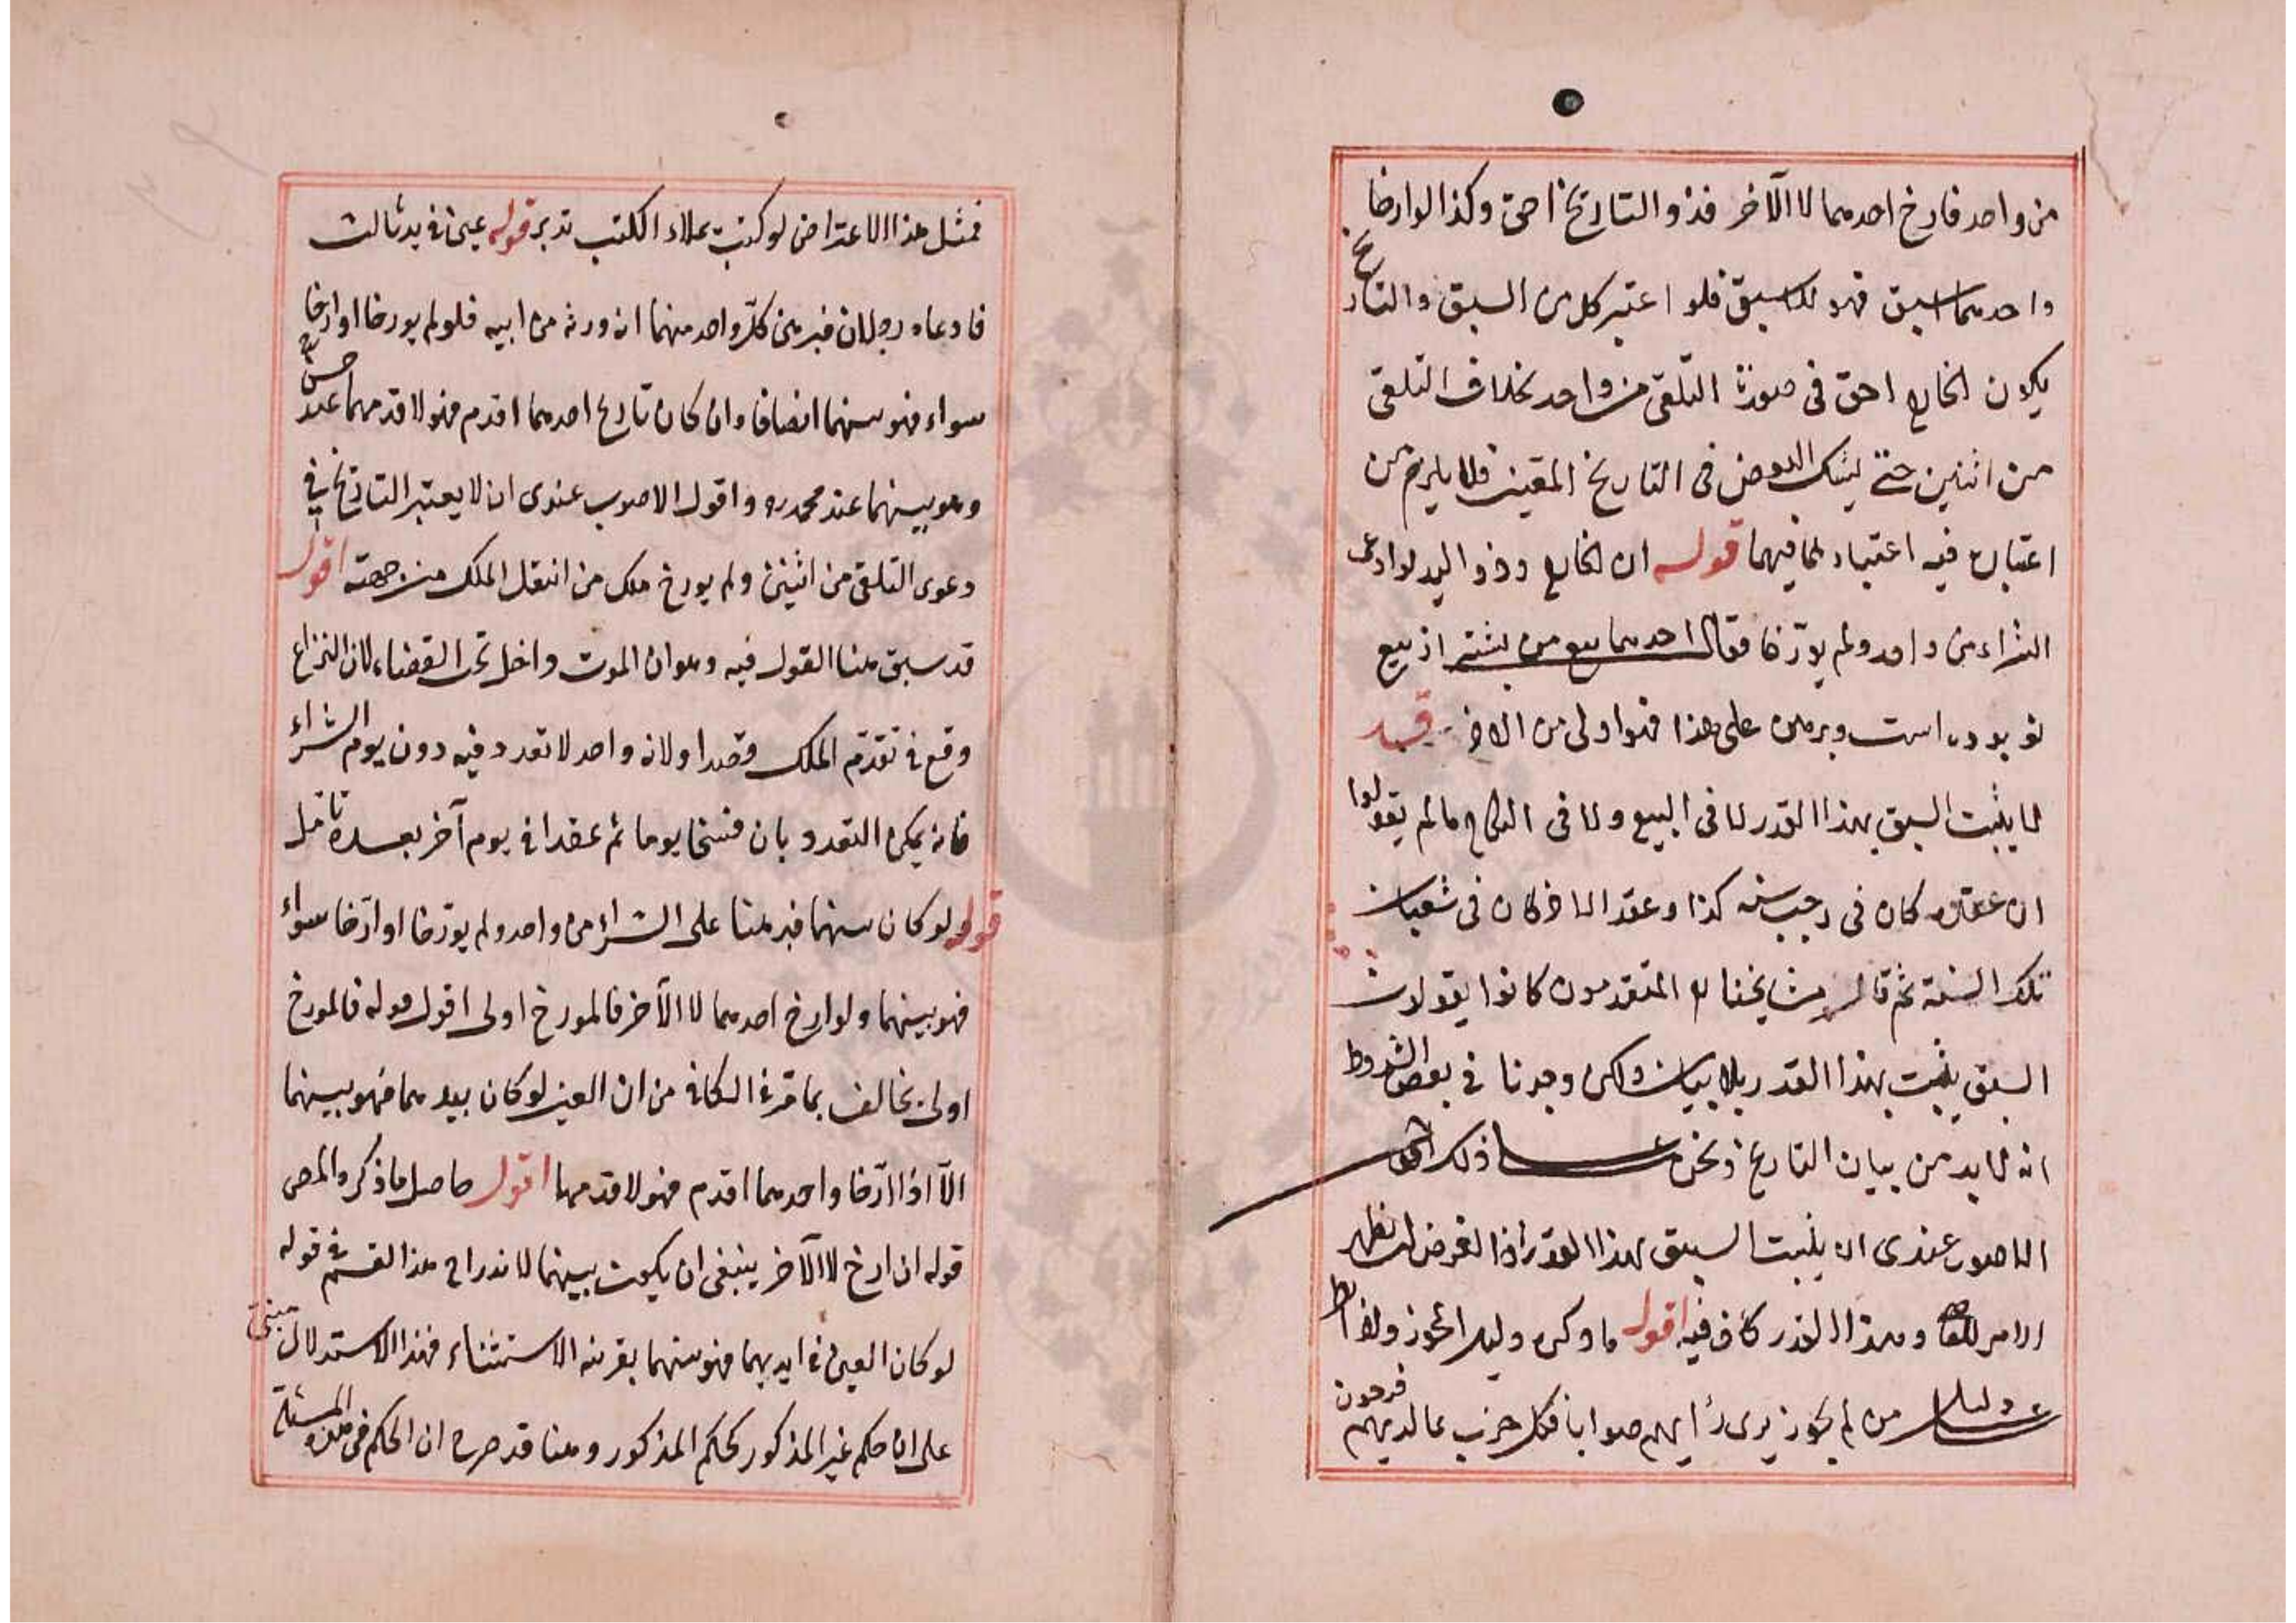 من واحد فارخ احدهما لا الآخر فذو التاريخ احق وكذا لو ارخا
واحدهما اسبق فهو للاسبق فلو اعتبر كل من السبق والتاريخ
يكون الخارج احق فى صورة التلقى من واحد بخلاف التلقى
من اثنين حتى فى التاريخ فلا يلزم من
اعتباره فيه اعتباره فيهما قوله ان الخارج وذو اليد لو ادعى
الشراء من واحد ولم يؤرخا فقال احدهما بيع من پيشتر از بيع
تو بوده است وبرهن على هذا فهو اولى من الآخر قيد
لا يثبت السبق بهذا القدر لا فى البيع ولا فى النكاح ما لم يقولوا
ان عقده كان فى رجب سنه كذا وعقد الآخر كان فى شعبان
تلك السنة ثم قال مشايخنا المتقدمون كانوا يقولون
السبق يثبت بهذا القدر بلا بيان ولكن وجدنا فى بعض الشروط
انه لا بد من بيان التاريخ ونحن على ذلك اقول
الاصوب عندى ان يثبت السبق بهذا القدر اذ الغرض ان يظهر
الامر للقاضى وهذا القدر كاف فيه اقول ما ذكره دليل المجوز ولو اطلع
على دليل من لم يجوز يرى رأيهم صوابا فكل حزب بما لديهم فرحون
فمثل هذا الاعتراض لو كتبت بملاء الكتب تدبر قوله عين فى يد ثالث
فادعاه رجلان فبرهن كل واحد منهما انه ورثه من ابيه فلو لم يورخا او ارخا
سواء فهو بينهما انصافا وان كان تاريخ احدهما اقدم فهو لاقدمهما عند ح س
وهو بينهما عند محمد ره واقول الاصوب عندى ان لا يعتبر التاريخ فى
دعوى التلقى من اثنين ولم يورخ ملك من انتقل الملك من جهته اقول
قد سبق منا القول فيه وهو ان الموت داخل تحت القضاء لان النزاع
وقع فى تقدم الملك قصدا ولانه واحد لا تعدد فيه دون يوم الشراء
فانه يمكن التعدد بان فسخا يوما ثم عقدا فى يوم آخر بعده تامل
قوله لو كان بينهما فبرهنا على الشراء من واحد ولم يؤرخا او ارخا سواء
فهو بينهما ولو ارخ احدهما لا الآخر فالمورخ اولى اقول قوله فالمورخ
اولى يخالف بما مر فى الكافى من ان العين لو كان بيدهما فهو بينهما
الا اذا ارخا واحدهما اقدم فهو لاقدمهما اقول حاصل ما ذكره المص
قوله ان ارخ لا الآخر ينبغى ان يكون بينهما لاندراج هذا القسم فى قوله
لو كان العين فى ايديهما فهو بينهما بقرينه الاستثناء فهذا الاستدلال مبنى
على ان حكم غير المذكور كحكم المذكور وهنا قد صرح ان الحكم فى هذه المسئلة